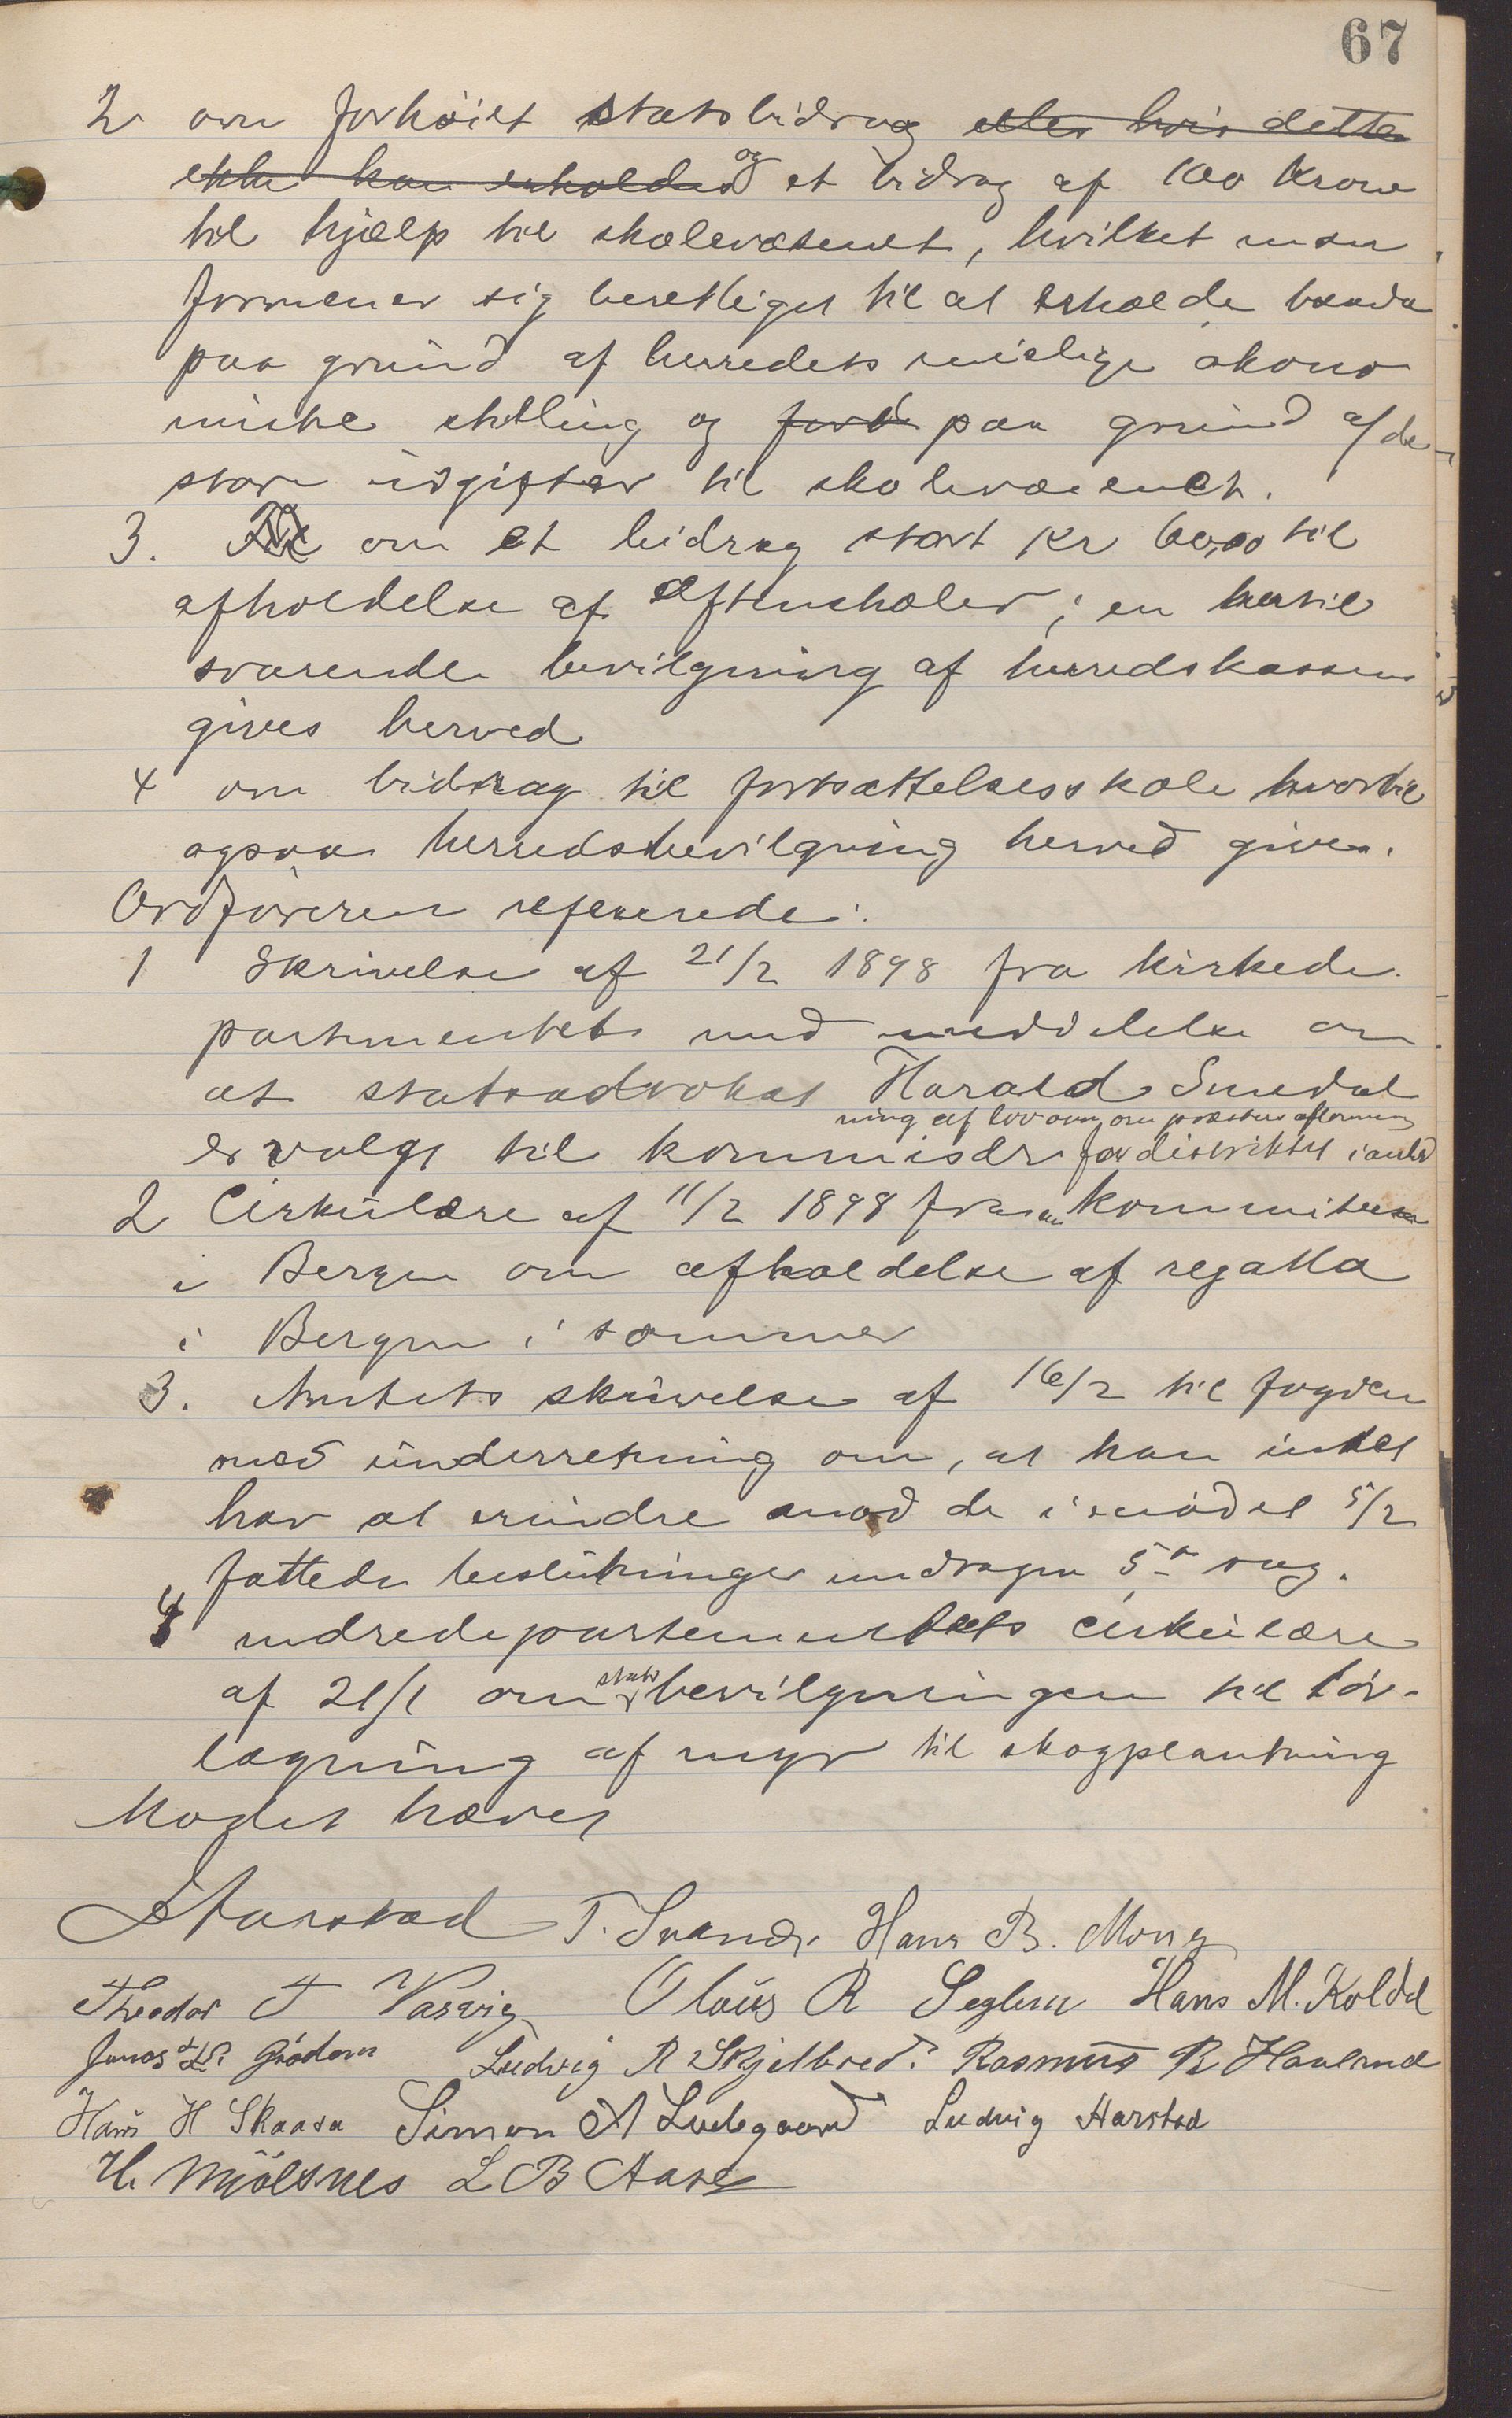 67
2 om forhøiet statsbidrag eller hvis dette
ikke kan erholdes og et bidrag af 100 Krone
til hjælp til skolevæsenet, hvilket man
formener sig berettiget til at erholde baade
paa grund af herredets mislige økono
miske stilling og paa grund af de
store udgifter til skolevæsenet.
3. om et bidrag stort Kr 60,00 til
afholdelse af aftenskoler; en hertil
svarende bevilgning af herredskassen
gives herved
4 om bidrag til fortsættelsesskole hvortil
ogsaa herredsbevilgning herved gives.
Ordføreren refererede:
1 Skrivelse af 21/2 1898 fra kirkede
partementet med meddelelse om
at statsadvokat Harald Smedal
ning af loven om præsters aflønning
er valgt til kommisær for distriktet i anled
2 Cirkulære af 11/2 1898 fra en kommitee
i Bergen om afholdelse af regatta
i Bergen i sommer
3. Amtets skrivelse af 16/2 til fogden
med underretning om, at han intet
har at erindre mod de i mødet 5/2
fattede beslutninger undtagen 5te sag.
4 indredepartementets cirkulære
af 21/1 om stats bevilgningen til tør-
lægning af myr til skogplantning
Mødet hævet
Harstad T. Svandr. Hans B. Mong
Theodor T Vasvig Olaus R Seglem Hans M. Koldal
Jonas Grødem Ludvig R Skjelbred. Rasmus R Haaland
Hans H Skaara Simon A Ludegaard Ludvig Harstad
H. Mjølsnes L B Aase